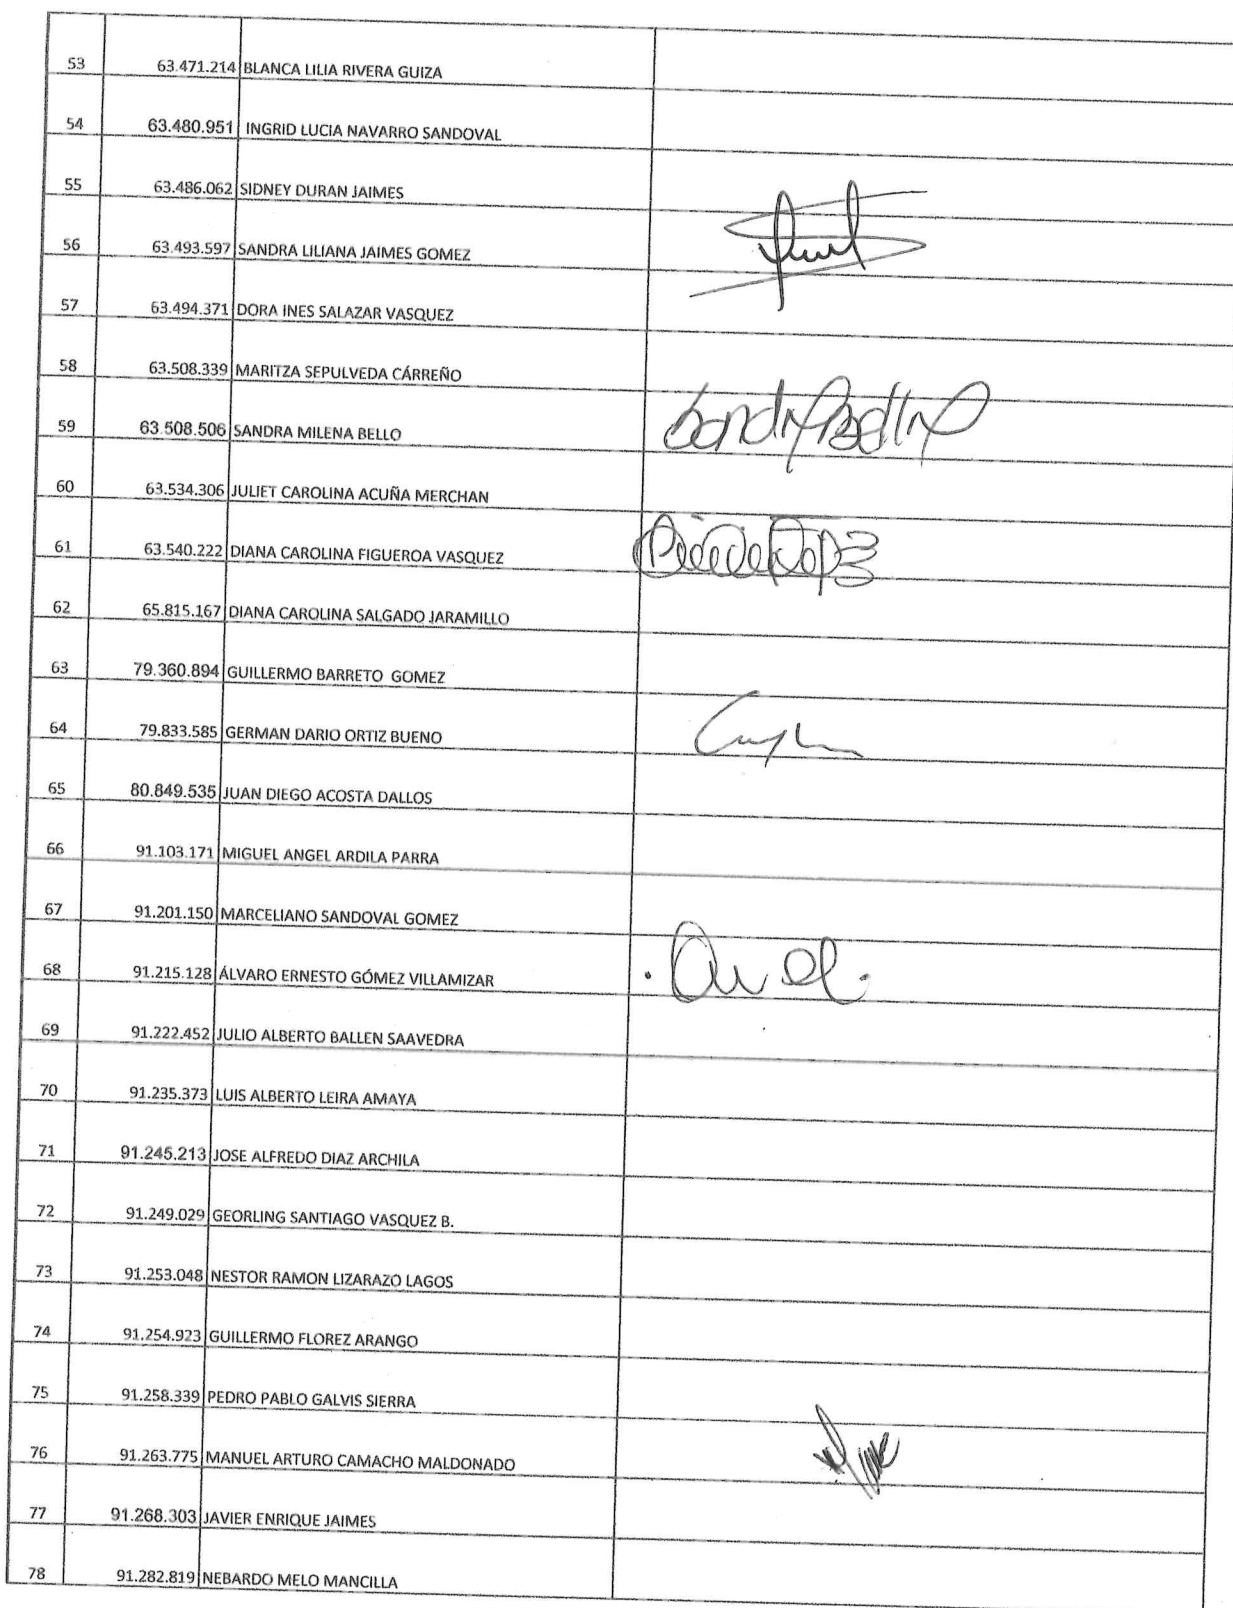 53 63.471.214 BLANCA LILIA RIVERA GUIZA
54 63.480.951 INGRID LUCIA NAVARRO SANDOVAL
55 63.486.062 SIDNEY DURAN JAIMES
56 63.493.597 SANDRA LILIANA JAIMES GOMEZ
57 63.494.371 DORA INES SALAZAR VASQUEZ
58 63.508.339 MARITZA SEPULVEDA CÁRREÑO
59 63.508.506 SANDRA MILENA BELLO
60 63.534.306 JULIET CAROLINA ACUÑA MERCHAN
61 63.540.222 DIANA CAROLINA FIGUEROA VASQUEZ
62 65.815.167 DIANA CAROLINA SALGADO JARAMILLO
63 79.360.894 GUILLERMO BARRETO GOMEZ
64 79.833.585 GERMAN DARIO ORTIZ BUENO
65 80.849.535 JUAN DIEGO ACOSTA DALLOS
66 91.103.171 MIGUEL ANGEL ARDILA PARRA
67 91.201.150 MARCELIANO SANDOVAL GOMEZ
68 91.215.128 ÁLVARO ERNESTO GÓMEZ VILLAMIZAR
69 91.222.452 JULIO ALBERTO BALLEN SAAVEDRA
70 91.235.373 LUIS ALBERTO LEIRA AMAYA
71 91.245.213 JOSE ALFREDO DIAZ ARCHILA
72 91.249.029 GEORLING SANTIAGO VASQUEZ B.
73 91.253.048 NESTOR RAMON LIZARAZO LAGOS
74 91.254.923 GUILLERMO FLOREZ ARANGO
75 91.258.339 PEDRO PABLO GALVIS SIERRA
76 91.263.775 MANUEL ARTURO CAMACHO MALDONADO
77 91.268.303 JAVIER ENRIQUE JAIMES
78 91.282.819 NEBARDO MELO MANCILLA